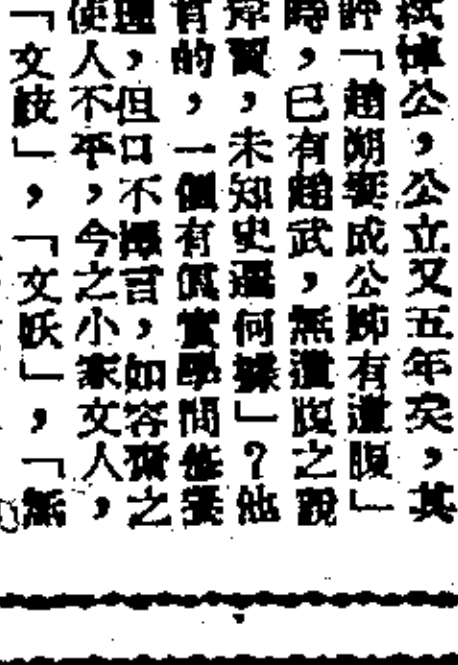 悼公，公立又五年矣，其
「趙朔妻成公姊有遺腹」
時，已有趙武，無遺腹之說
，未知史遷何據」？他
有的，一個有真實學問修養
理，但口不擇言，如容齋之
使人不平，今之小家文人，
「文妓」，「文妖」，「無